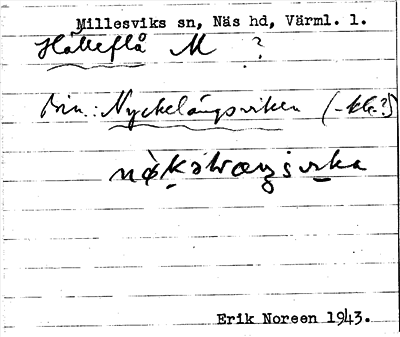 Millesviks sn, Näs hd, Värml. l.
Hälleflå M ?
Bin.: Nyckelängsviken (-kle?)
Erik Noreen 1943.